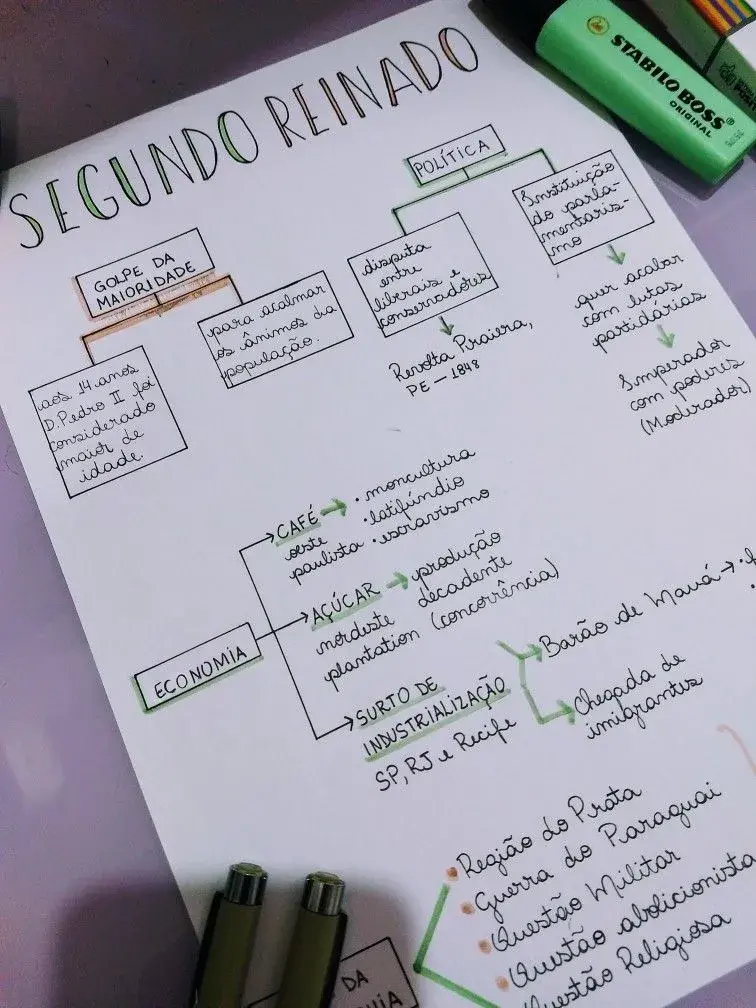 SEGUNDO REINADO
STABILO BOSS
ORIGINAL
GOLPE DA
MAIORIDADE
aos 14 anos
D. Pedro II foi
considerado
maior de
idade.
para acalmar
os ânimos da
população.
POLÍTICA
disputa
entre
liberais e
conservadores
Revolta Praiera,
PE - 1848
Instituição
do parla-
mentaris-
mo
quer acabar
com lutas
partidárias
Imperador
com poderes
(Moderador)
ECONOMIA
CAFÉ → · moncultura
oeste · latifúndio
paulista · escravismo
AÇÚCAR → produção
nordeste decadente
plantation (concorrência)
SURTO DE
INDUSTRIALIZAÇÃO
SP, RJ e Recife
Barão de Mauá →
Chegada de
imigrantes
• Região do Prata
• Guerra do Paraguai
• Questão Militar
• Questão abolicionista
Questão Religiosa
DA